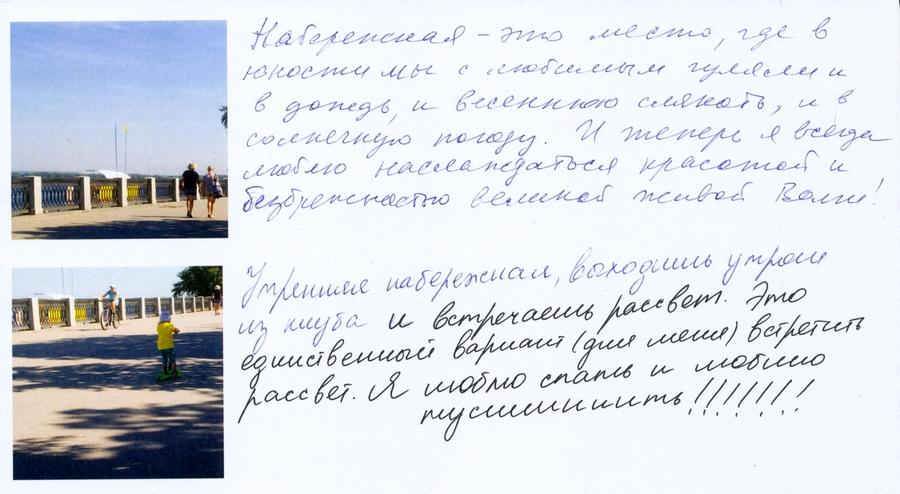 Набережная - это место, где в
юности мы с любимым гуляли и
в дождь, и весеннюю слякоть, и в
солнечную погоду. И теперь я всегда
люблю наслаждаться красотой и
безбрежностью великой живой Волги!
Утренняя набережная, выходишь утром
из клуба и встречаешь рассвет. Это
единственный вариант (для меня) встретить
рассвет. Я люблю спать и люблю
тусииииить!!!!!!!